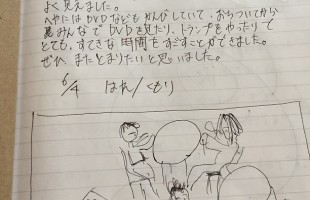 よく見えました。
へやにはDVDなどもかんびしていて、おちついてから
みんなでDVDを見たり、トランプをやったりで
とても、すてきな時間をすごすことができました。
ぜひ、またとまりたいと思いました。
6/4 はれ/くもり